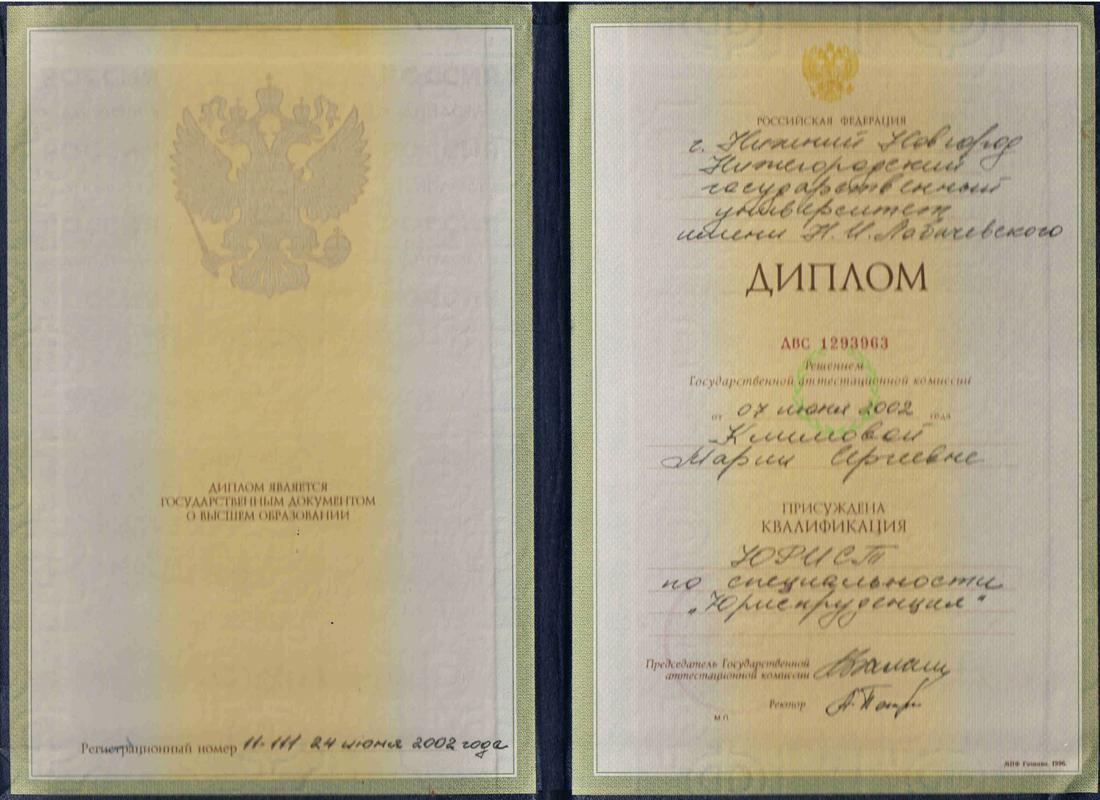 ДИПЛОМ ЯВЛЯЕТСЯ
ГОСУДАРСТВЕННЫМ ДОКУМЕНТОМ
О ВЫСШЕМ ОБРАЗОВАНИИ
Регистрационный номер 11-111 24 июня 2002 года
РОССИЙСКАЯ ФЕДЕРАЦИЯ
г. Нижний Новгород
Нижегородский
государственный
университет
имени Н.И. Лобачевского
ДИПЛОМ
ДВС 1293963
Решением
Государственной аттестационной комиссии
от 07 июня 2002 года
Климовой
Марии Сергеевне
ПРИСУЖДЕНА
КВАЛИФИКАЦИЯ
ЮРИСТ
по специальности
„Юриспруденция"
Председатель Государственной
аттестационной комиссии
Ректор
М.П.
МПФ Гознака. 1996.